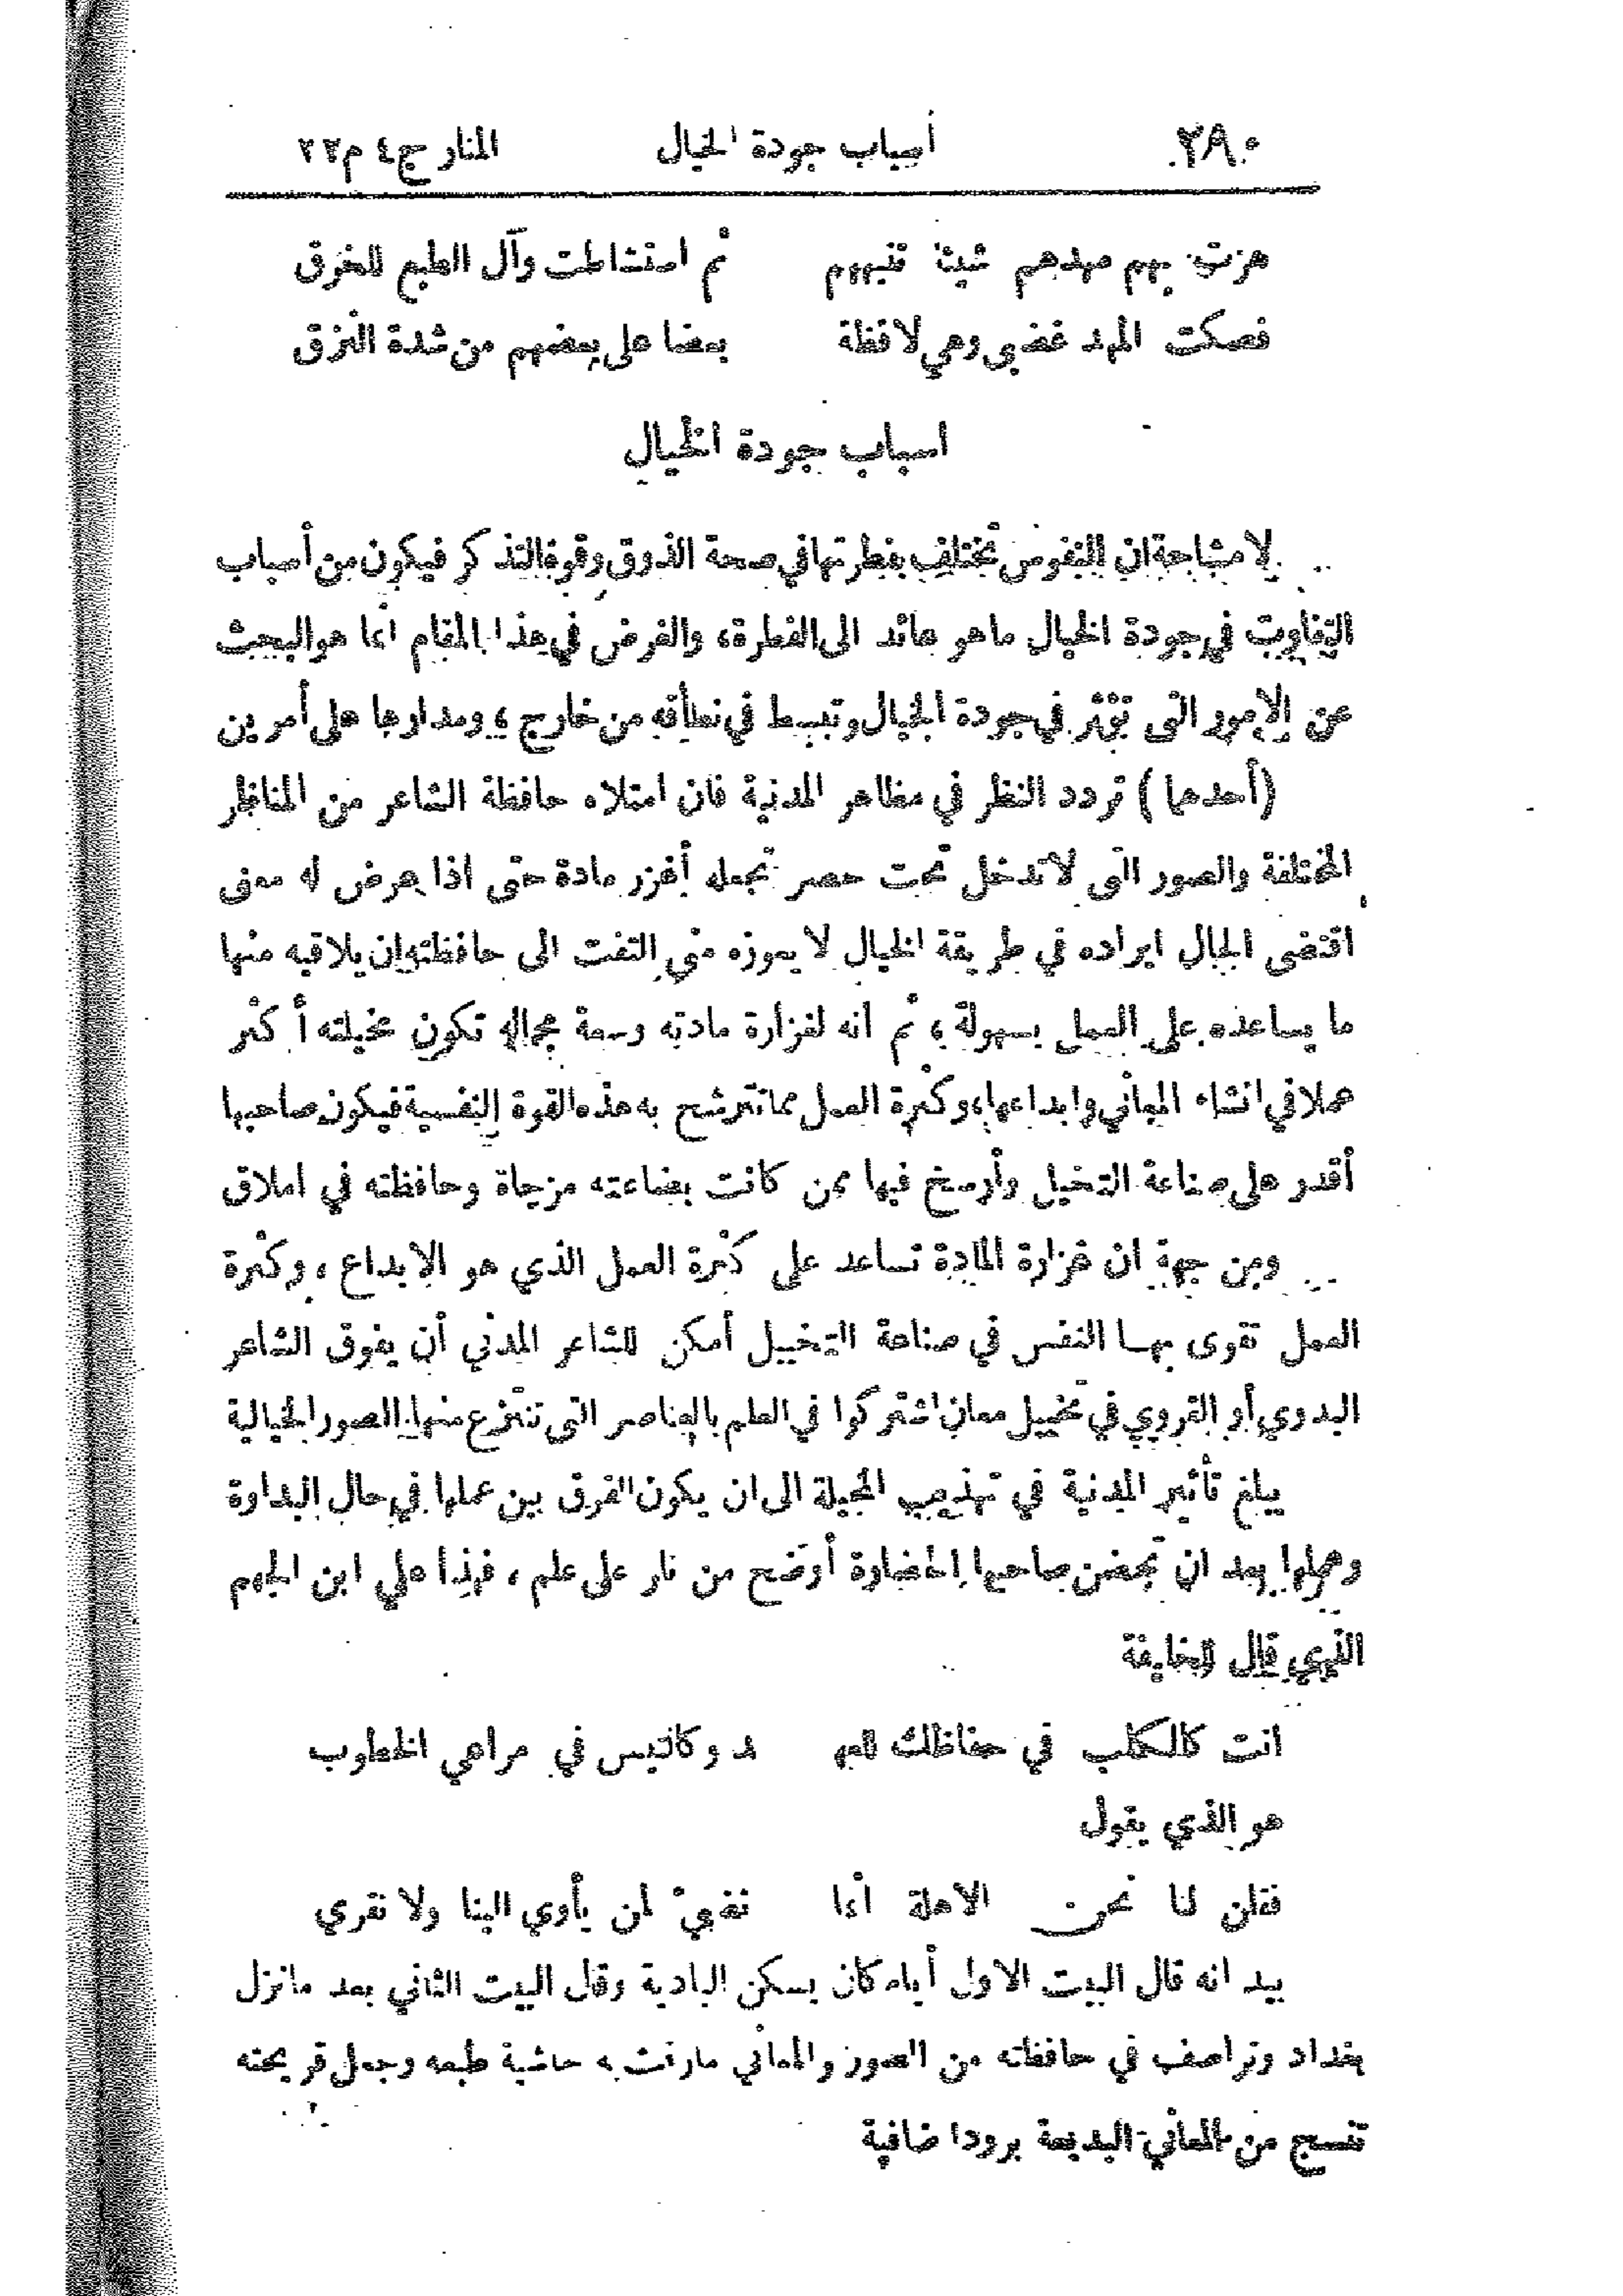 ٢٩٠ أسباب جودة الخيال المنار ج ٤ م ٢٢
هزت بهم مهدهم شيئا تنبههم ثم استشاطت وآل الطبع للخرق
فصكت المهد غضبى وهي لافظة بعضا على بعضهم من شدة النزق
اسباب جودة الخيال
لا مشاحة ان النفوس تختلف بفطرتها في صحة الذوق وقوة التذكر فيكون من أسباب
التفاوت في جودة الخيال ما هو عائد الى الفطرة، والغرض في هذا المقام انما هو البحث
عن الامور التى تؤثر في جودة الخيال وتبسط في نطاقه من خارج، ومدارها على أمرين
(أحدهما) تردد النظر في مظاهر المدنية فان امتلاء حافظة الشاعر من المناظر
المختلفة والصور التى لا تدخل تحت حصر تجعله أغزر مادة حتى اذا عرض له معنى
اقتضى الحال ايراده في طريقة الخيال لا يعوزه متى التفت الى حافظته ان يلاقيه منها
ما يساعده على العمل بسهولة، ثم انه لغزارة مادته وسعة مجاله تكون مخيلته أكثر
عملا في انشاء المعاني وابداعها، وكثرة العمل مما تترشح به هذه القوة النفسية فيكون صاحبها
أقدر على صناعة التخيل وأرسخ فيها ممن كانت بضاعته مزجاة وحافظته في املاق
ومن جهة ان غزارة المادة تساعد على كثرة العمل الذي هو الابداع، وكثرة
العمل تقوى بها النفس في صناعة التخييل أمكن للشاعر المدني أن يفوق الشاعر
البدوي أو القروي في تخييل معان اشتركوا في العلم بالعناصر التى تنتزع منها الصور الخيالية
يبلغ تأثير المدنية في تهذيب المخيلة الى ان يكون الفرق بين عملها في حال البداوة
وعملها بعد ان تحضن صاحبها الحضارة أوضح من نار على علم، فهذا علي ابن الجهم
الذي قال للخليفة
انت كالكلب في حفاظك للعهـ ـد وكالتيس في مراعي الخطوب
هو الذي يقول
فقلن لنا نحن الاهلة انما نضيء لمن يأوي الينا ولا نقري
بيد انه قال البيت الاول أيام كان يسكن البادية وقال البيت الثاني بعد ما نزل
بغداد وتراصف في حافظته من الصور والمعاني ما رقت به حاشية طبعه وجعل قريحته
تنسج من المعاني البديعة برودا ضافية